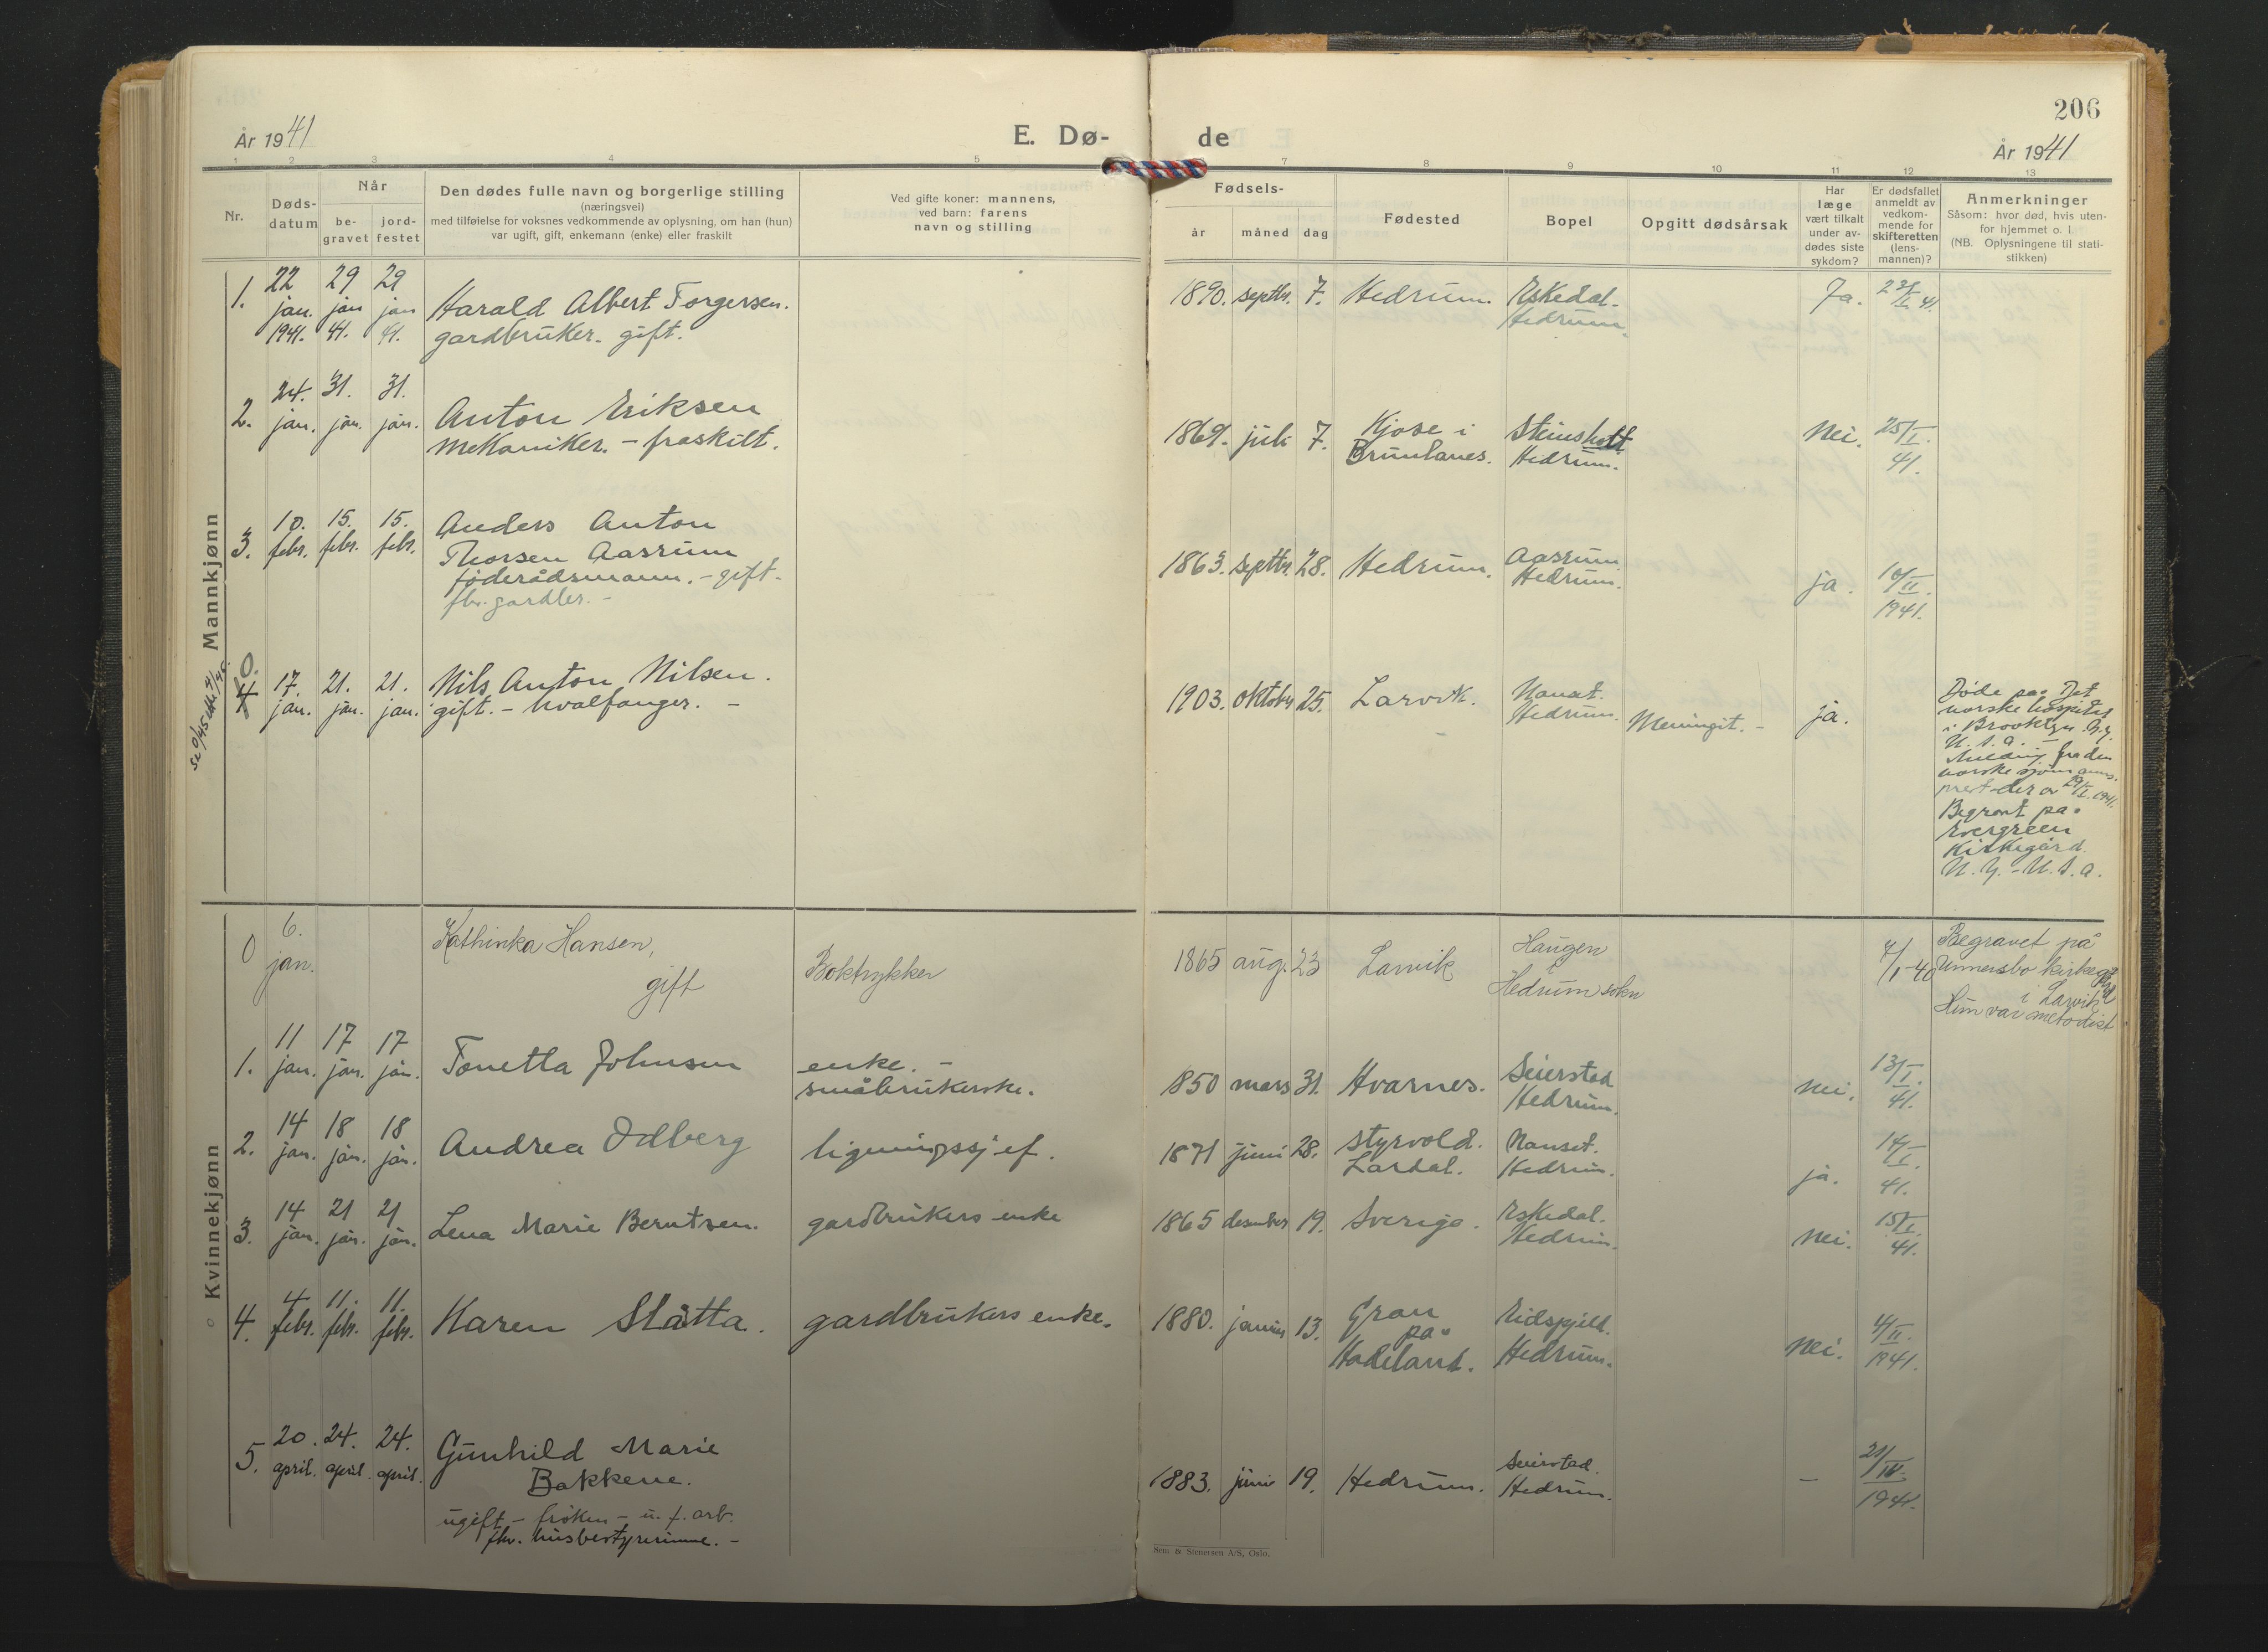 206
År 1941 E. Dø- de År 1941
1 2 3 4 5 7 8 9 10 11 12 13
Nr.
Døds-
datum
Når
be-
gravet
jord-
festet
Den dødes fulle navn og borgerlige stilling
(næringsvei)
med tilføielse for voksnes vedkommende av oplysning, om han (hun)
var ugift, gift, enkemann (enke) eller fraskilt
Ved gifte koner: mannens,
ved barn: farens
navn og stilling
Fødsels-
år måned dag
Fødested
Bopel
Opgitt dødsårsak
Har
læge
vært tilkalt
under av-
dødes siste
sykdom?
Er dødsfallet
anmeldt av
vedkom-
mende for
skifteretten
(lens-
mannen)?
Anmerkninger
Såsom: hvor død, hvis uten-
for hjemmet o. l.
(NB. Oplysningene til stati-
stikken)
Mannkjønn
1. 22 jan. 1941. 29 jan 41. 29 jan 41.
Harald Albert Torgersen.
gardbruker. gift.
1890. septbr. 7. Hedrum. Eskedal.
Hedrum.
Ja. 23/I 41.
2. 24. jan. 31. jan. 31. jan.
Anton Eriksen
mekaniker. – fraskilt.
1869. juli 7. Kjose i
Brunlanes.
Steinsholt
Hedrum.
Nei. 25/I. 41.
3. 10. febr. 15. febr. 15. febr.
Anders Anton
Thorsen Aasrum
føderådsmann. – gift.
fhv. gardbr. –
1863. septbr. 28. Hedrum. Aasrum
Hedrum.
ja. 10/II 1941.
4 0. 17. jan. 21. jan. 21. jan.
Nils Anton Nilsen.
gift. – hvalfanger. –
1903. oktober 25. Larvik. Nanset.
Hedrum.
Meningit. – ja.
Døde på Det
norske hospital
i Brooklyn N.Y.
U.S.A. –
Melding fra den
norske sjømanns-
prest der av 29/I. 1941.
Begravet på
Evergreen
Kirkegård
N.Y. – U.S.A.
Kvinnekjønn
0 6. jan.
Kathinka Hansen,
gift
Boktrykker
1865 aug. 23 Larvik Haugen
i
Hedrum sokn
7/1-40
Begravet på
Undersbo kirkegård
i Larvik
Hun var metodist
1. 11 jan. 17 jan. 17 jan.
Tonetta Johnsen
enke. –
småbrukerske.
1850 mars 31. Hvarnes. Seierstad
Hedrum.
nei. 13/I. 41.
2. 14 jan. 18 jan. 18 jan.
Andrea Odberg
ligningssjef.
1871 juni 28. Styrvold.
Lardal.
Nanset.
Hedrum.
ja. 14/I. 41.
3. 14 jan. 21 jan. 21 jan.
Lena Marie Berntsen.
gardbrukers enke
1865 desember 19. Sverige. Eskedal.
Hedrum.
Nei. 15/I 41.
4. 4 febr. 11. febr. 11. febr.
Karen Slåtta.
gardbrukers enke.
1880. januar 13. Gran
på
Hadeland.
Eidsfjell.
Hedrum.
Nei. 4/II. 1941.
5. 20. april. 24. april. 24. april.
Gunhild Marie
Bakkene.
ugift – frøken – u. f. arb.
fhv. husbestyrerinne. –
1883. juni 19. Hedrum. Seierstad.
Hedrum.
– 21/IV. 1941.
Sem & Stenersen A/S, Oslo.